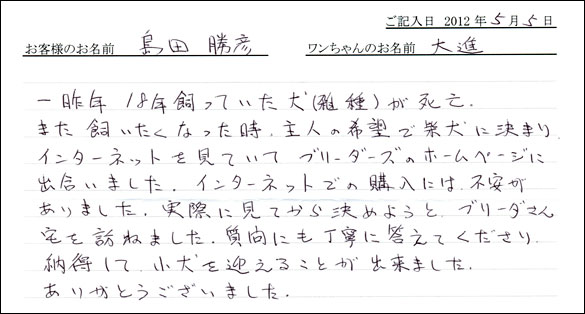 ご記入日 2012年5月5日
お客様のお名前 島田 勝彦 ワンちゃんのお名前 大進
一昨年 18年飼っていた犬(雑種)が死亡.
また飼いたくなった時、主人の希望で柴犬に決まり
インターネットを見ていて ブリーダーズのホームページに
出合いました. インターネットでの購入には、不安が
ありました. 実際に見てから決めようと、ブリーダさん
宅を訪ねました. 質向にも丁寧に答えてくださり、
納得して、小犬を迎えることが出来ました.
ありがとうございました.